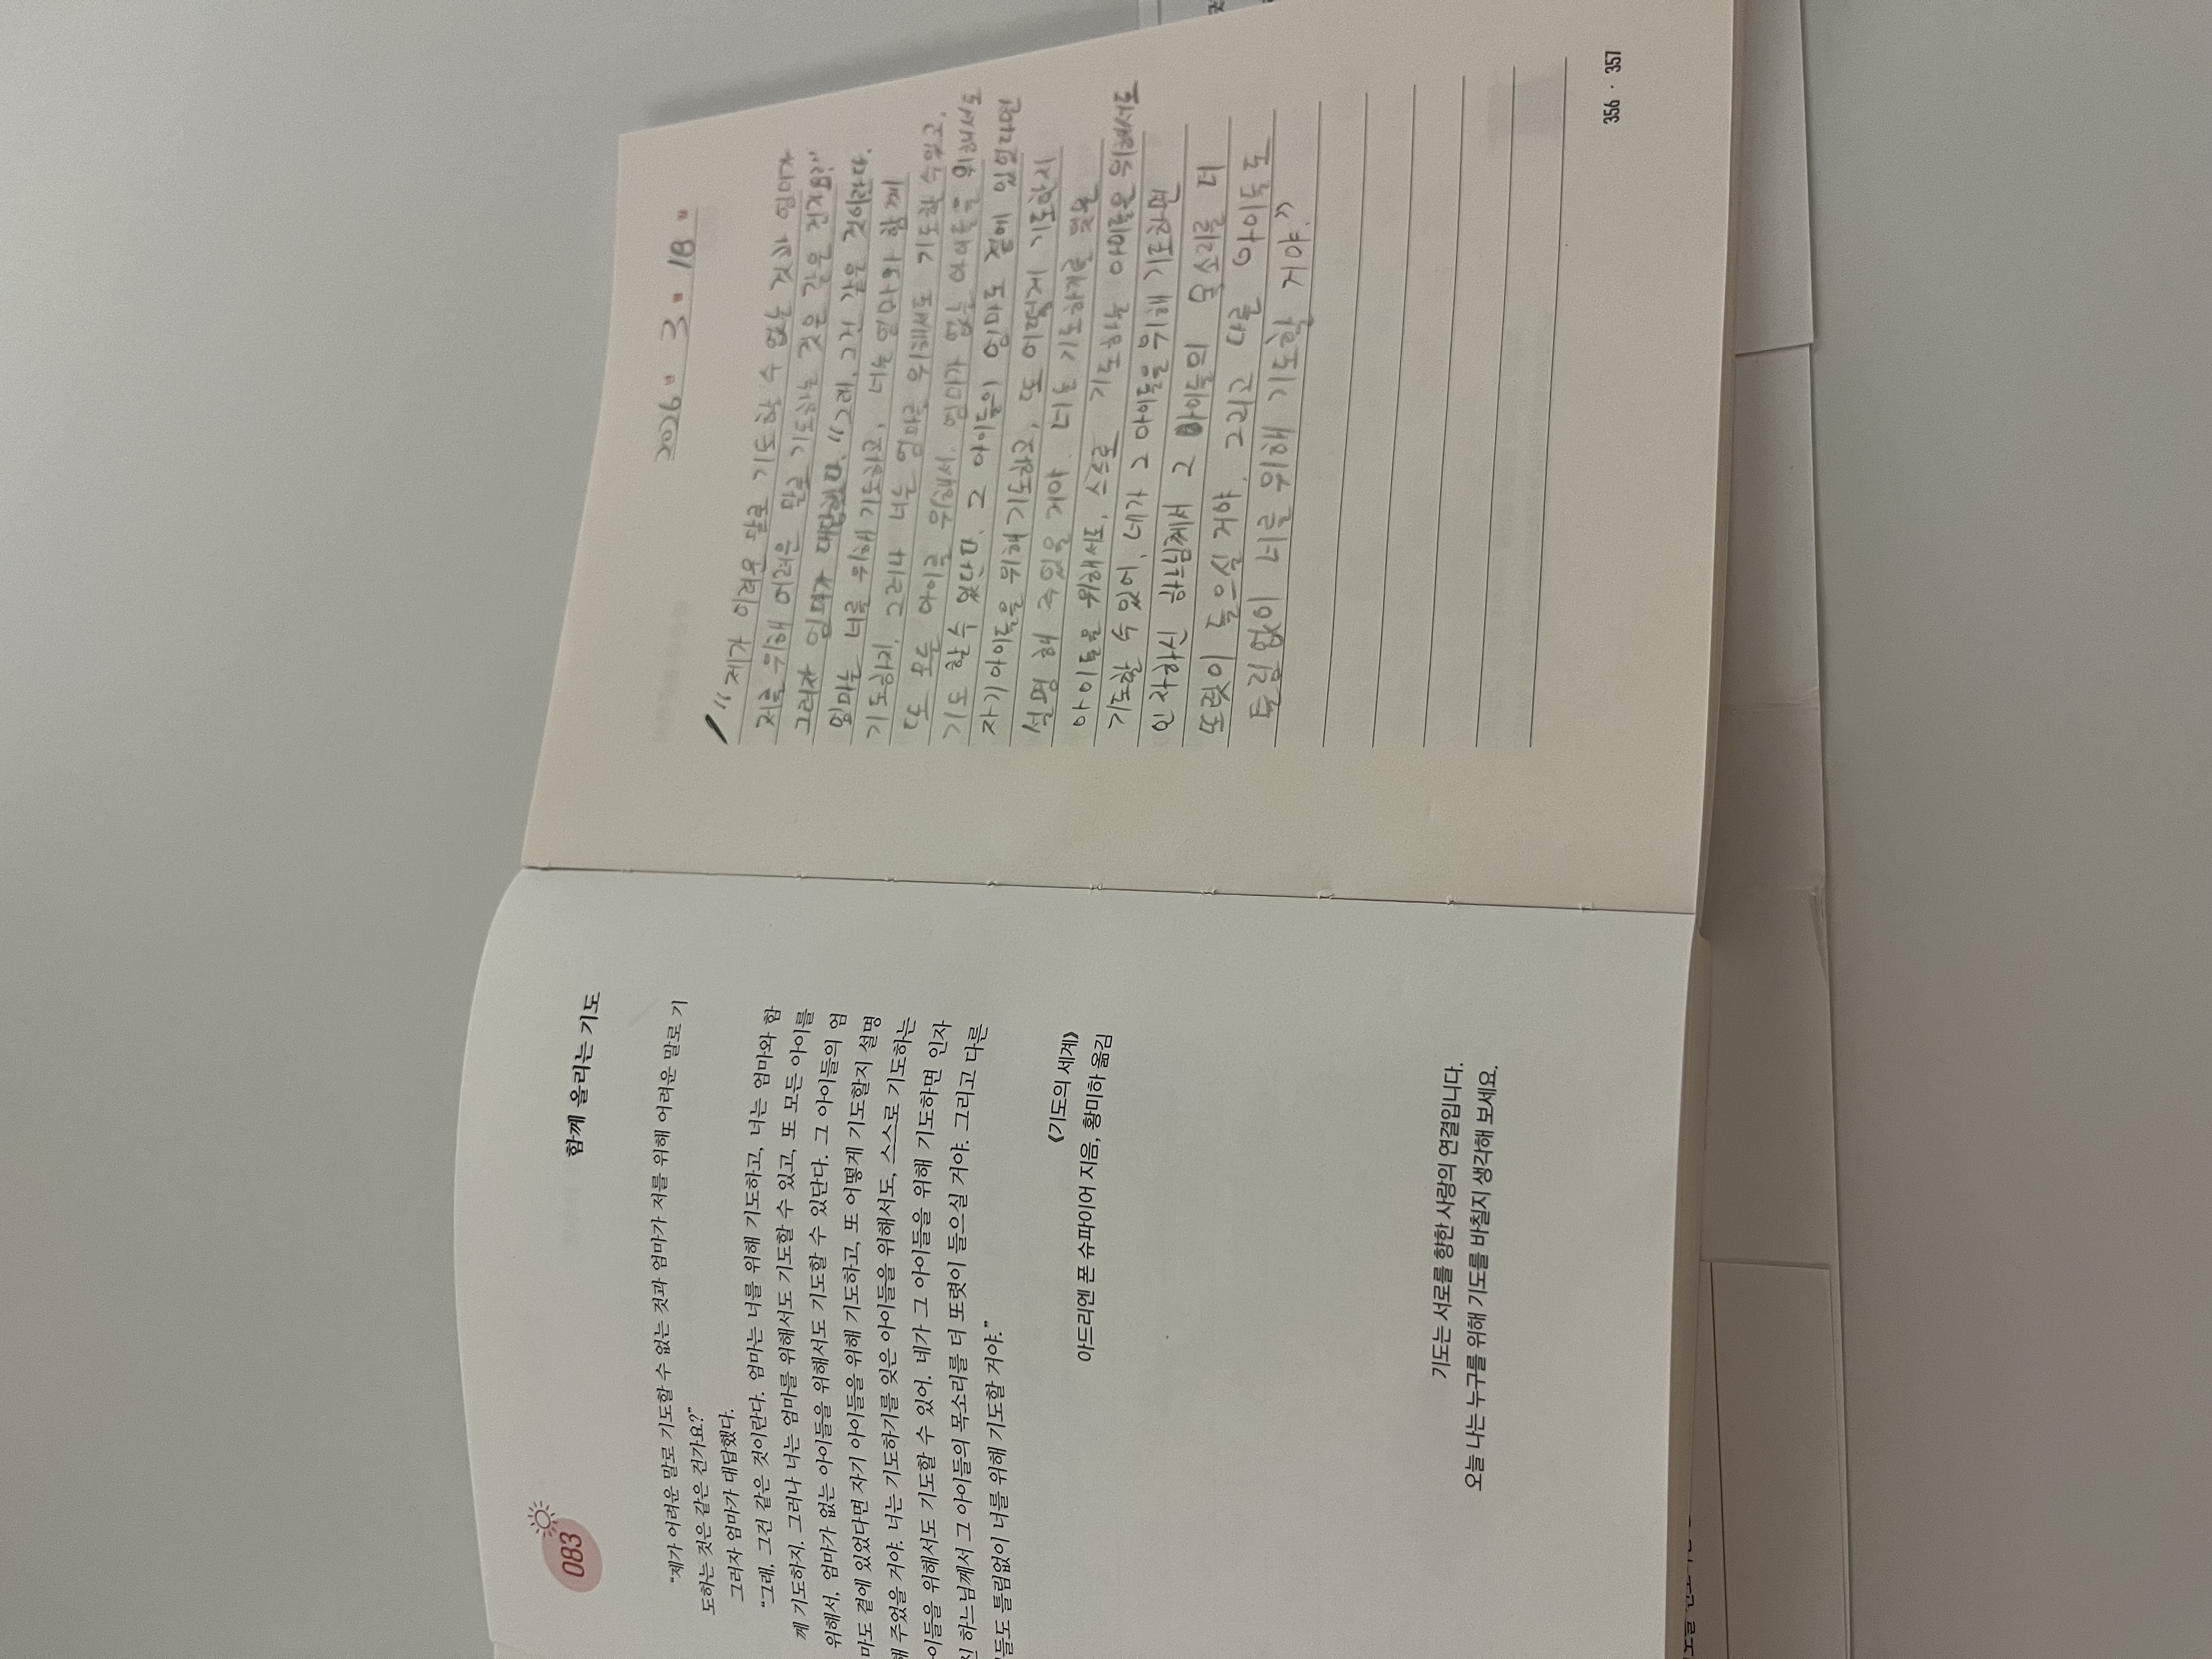 083
함께 올리는 기도
“제가 어려운 말로 기도할 수 없는 것과 엄마가 저를 위해 어려운 말로 기
도하는 것은 같은 건가요?”
그러자 엄마가 대답했다.
“그래, 그건 같은 것이란다. 엄마는 너를 위해 기도하고, 너는 엄마와 함
께 기도하지. 그러나 너는 엄마를 위해서도 기도할 수 있고, 또 모든 아이를
위해서, 엄마가 없는 아이들을 위해서도 기도할 수 있단다. 그 아이들의 엄
마도 곁에 있었다면 자기 아이들을 위해 기도하고, 또 어떻게 기도할지 설명
해 주었을 거야. 너는 기도하기를 잊은 아이들을 위해서도, 스스로 기도하는
이들을 위해서도 기도할 수 있어. 네가 그 아이들을 위해 기도하면 인자
하느님께서 그 아이들의 목소리를 더 또렷이 들으실 거야. 그리고 다른
들도 틀림없이 너를 위해 기도할 거야.”
《기도의 세계》
아드리엔 폰 슈파이어 지음, 황미하 옮김
기도는 서로를 향한 사랑의 연결입니다.
오늘 나는 누구를 위해 기도를 바칠지 생각해 보세요.
2026 3 18
“제가 어려운 말로 기도할 수 없는 것과 엄마가
저를 위해 어려운 말로 기도하는 것은 같은 건가요?”
그러자 엄마가 대답했다. “그래, 그건 같은 것이란다.
엄마는 너를 위해 기도하고, 너는 엄마와 함께
기도하지. 그러나 너는 엄마를 위해서도 기도할 수 있고,
또 모든 아이를 위해서, 엄마가 없는 아이들을 위해서도
기도 할 수 있단다. 그 아이들의 엄마도 곁에 있었다면
자기 아이들을 위해 기도하고, 또 어떻게 기도할지
설명 해 주었을 거야. 너는 기도하기를 잊은
아이들을 위해서도, 스스로 기도하는 아이들을 위해서도
기도할 수 있어. 네가 그 아이들을 위해 기도하면
인자하신 하느님께서 그 아이들의 목소리를 더
또렷이 들으실 거야. 그리고 다른 아이들도
틀림없이 너를 위해 기도할 거야.”
356 · 357